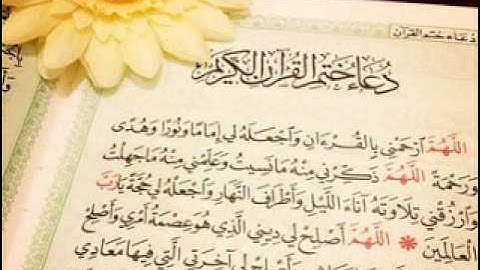 دُعَاء خَتمِ القُرآن
دُعَاءُ خَتْمِ القُرْآنِ الكَرِيْمِ
اللَّهُمَّ ارْحَمْنِي بِالقُرْءَانِ وَاجْعَلْهُ لِي إِمَامًا وَنُورًا وَهُدًى
وَرَحْمَةً اللَّهُمَّ ذَكِّرْنِي مِنْهُ مَا نَسِيتُ وَعَلِّمْنِي مِنْهُ مَا جَهِلْتُ
وَارْزُقْنِي تِلَاوَتَهُ آنَاءَ اللَّيْلِ وَأَطْرَافَ النَّهَارِ وَاجْعَلْهُ لِي حُجَّةً يَارَبَّ
العَالَمِينَ * اللَّهُمَّ أَصْلِحْ لِي دِينِي الَّذِي هُوَ عِصْمَةُ أَمْرِي وَأَصْلِحْ
وَأَصْلِحْ لِي آخِرَتِي الَّتِي فِيهَا مَعَادِي